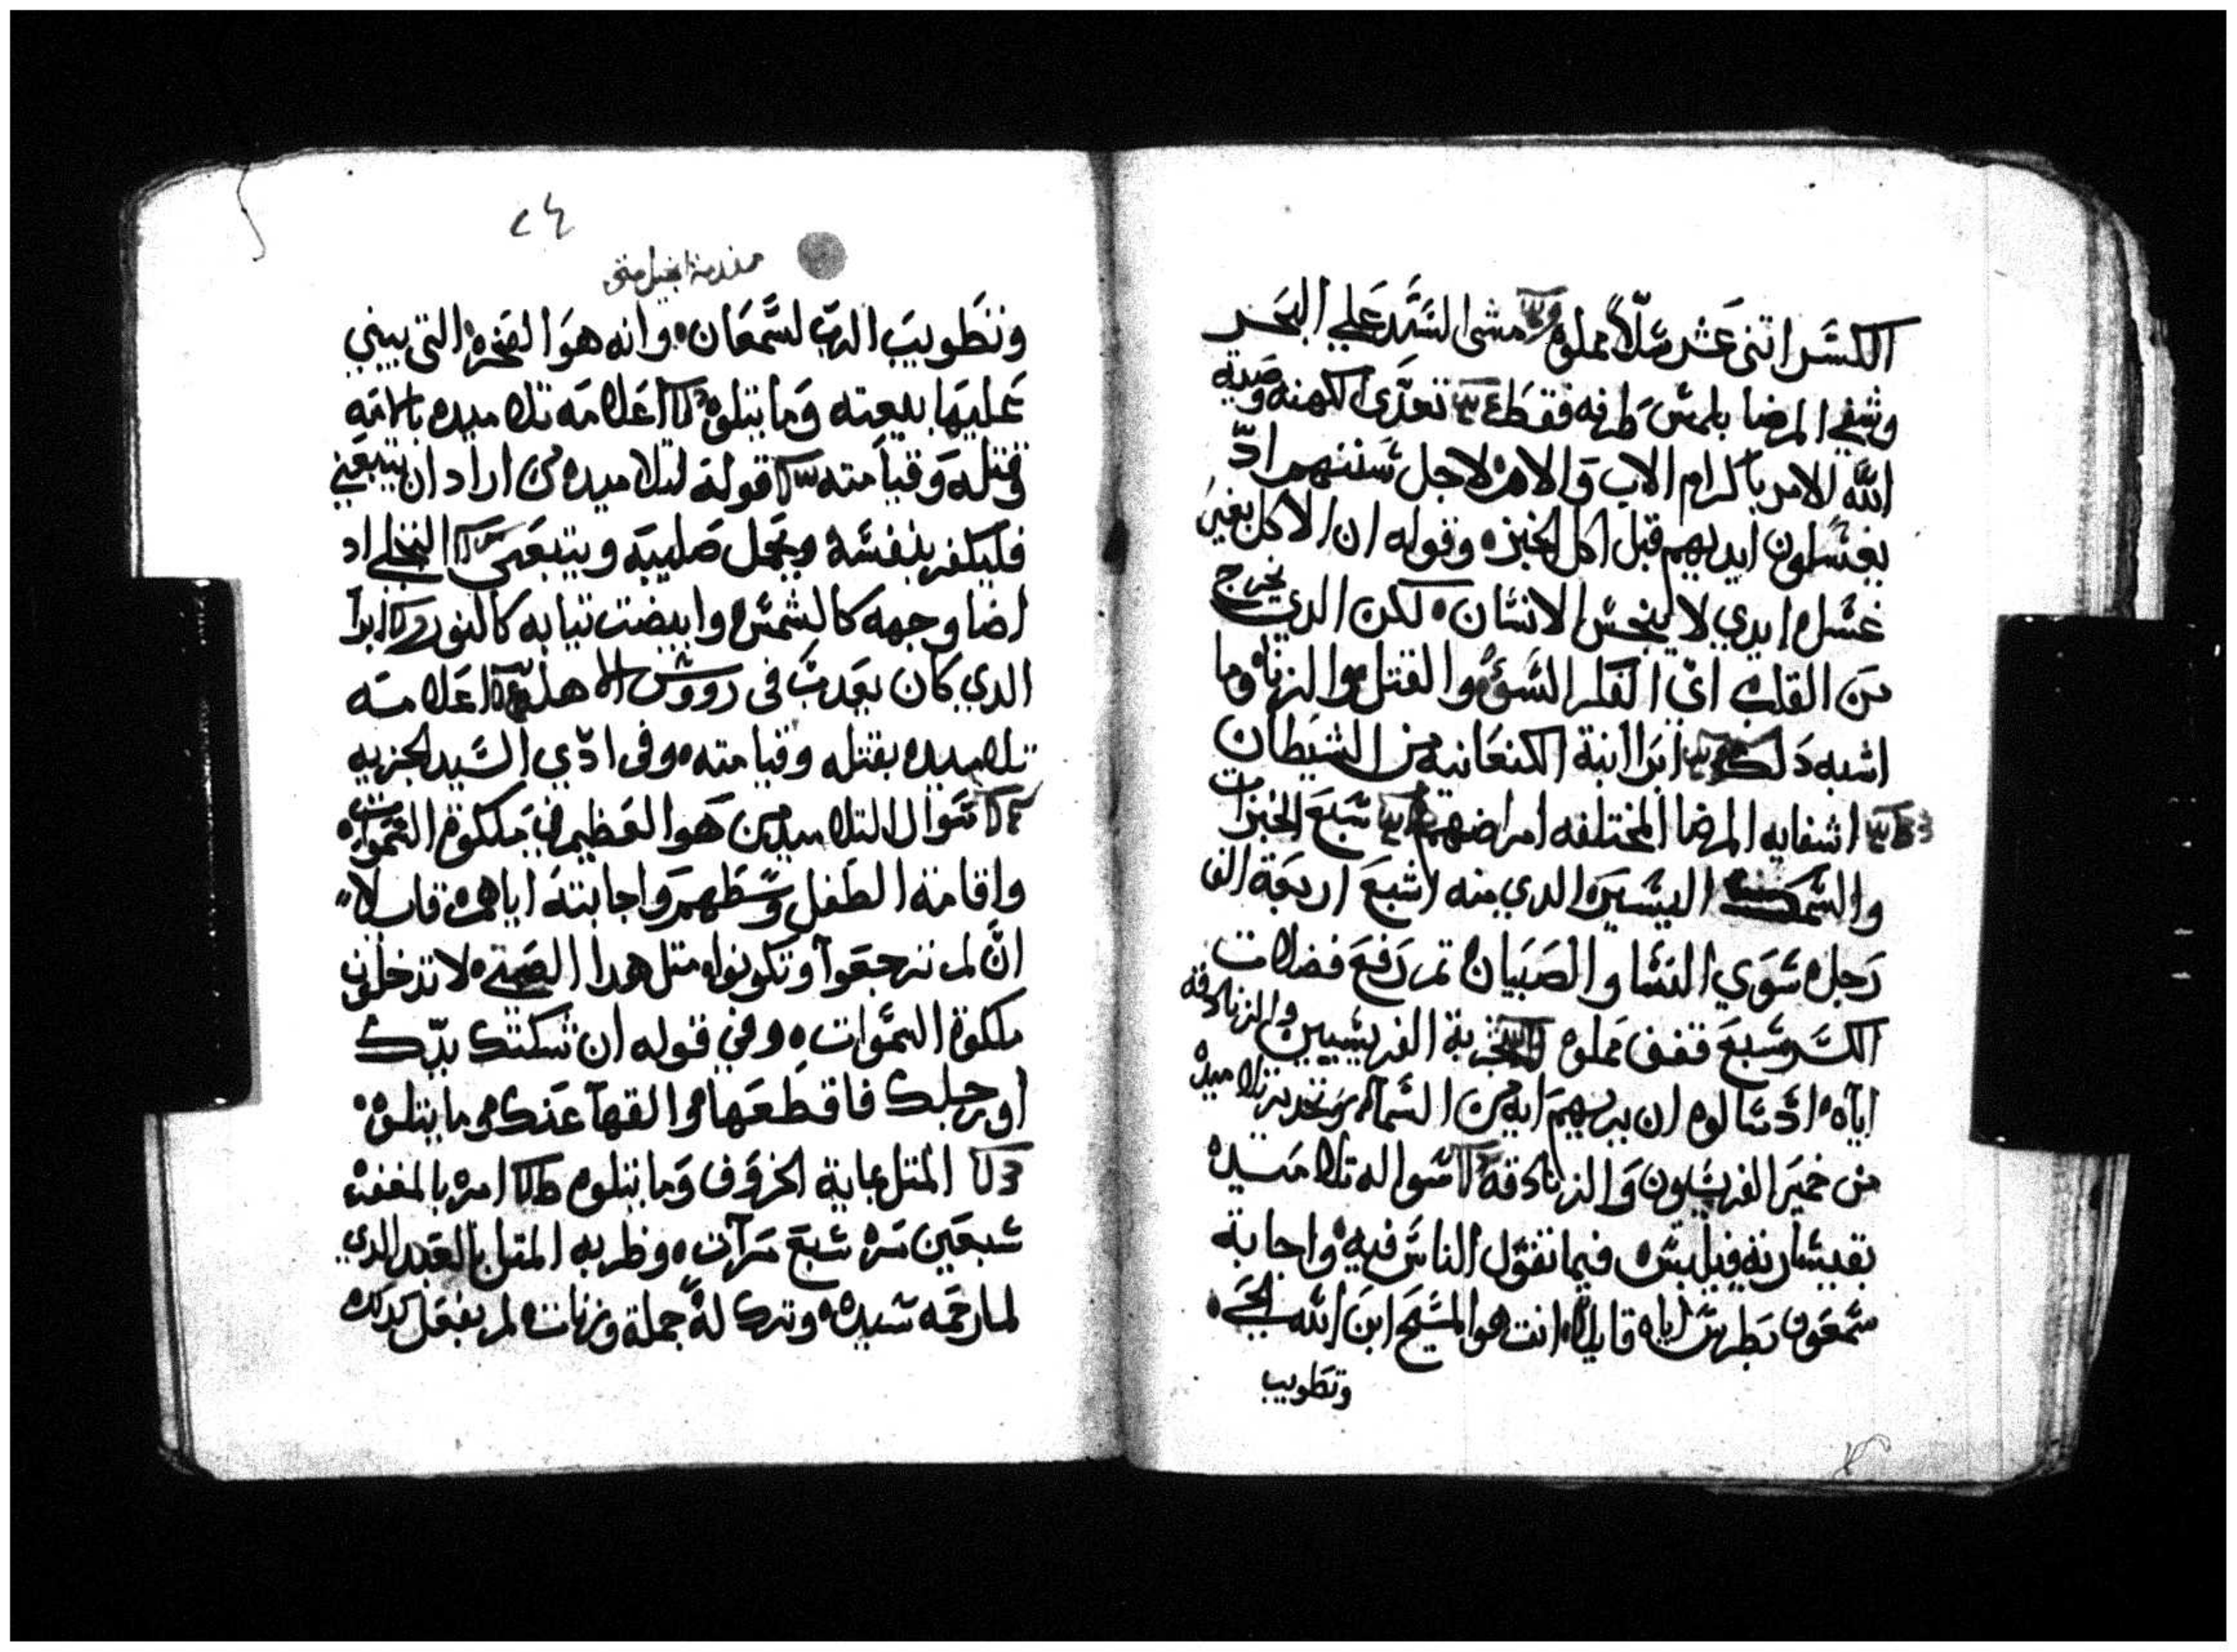 الكسر اتنى عشر سلاً مملوه مشى السيد علي البحر
وشفي المرضا بلمس طرفه فقط تعدى الكهنه وصية
الله الامر باكرام الاب والام لاجل سنتهم اد
يغسلون ايديهم قبل اكل الخبزه وقوله ان الاكل بغير
غسل ايدي لا ينجس الانسان لكن الدي يخرج
من القلب اي الفكر السوء والقتل والزناه وما
اشبه دلك ابرا ابنة الكنعانيه من الشيطان
اشفايه المرضا المختلفه امراضهم سبع الخبزات
والسمك اليسير الدي منه اشبع اربعة الف
رجل سوي النسا والصبيان تم رفع فضلات
الكسر سبع قفف مملوه تجربة الفريسيين والزنادقه
اياه اد سالوه ان يريهم ايه من السماء وتحديره تلاميده
من خمير الفريسيون والزنادقه سواله تلاميده
بقيسارية فيلبس فيما تقول الناس فيه واجابة
سمعون بطرس اياه قايلا انت هو المسيح ابن الله الحي
وتطويب
٢٤
مقدمة انجيل متى
وتطويب الرب لسمعان وانه هو الصخره التي يبني
عليها بيعته وما يتلوه اعلامه تلاميده بالامه
وقتله وقيامته قوله لتلاميده من اراد ان يتبعني
فليكفر بنفسه ويحمل صليبه ويتبعني التجلي اد
اضا وجهه كالشمس وابيضت تيابه كالنور ابرا
الدي كان يعدب في رووس الاهله اعلامه
تلاميده بقتله وقيامته وفي ادي السيد الجزيه
سوال التلاميد من هو العظيم في ملكوة السموات
واقامة الطفل وسطهم واجابته اياهم قايلا
ان لم ترجعوا وتكونوا متل هدا الصبي لا تدخلون
ملكوة السموات وفي قوله ان شكتك يدك
او رجلك فاقطعها والقها عنك وما يتلوه
المتل بماية الخروف وما يتلوه امره بالمغفره
سبعين مره سبع مرات وضربه المتل بالعبد الدي
لما رحمه سيده وترك له جملة وزنات لم يفعل كدلك